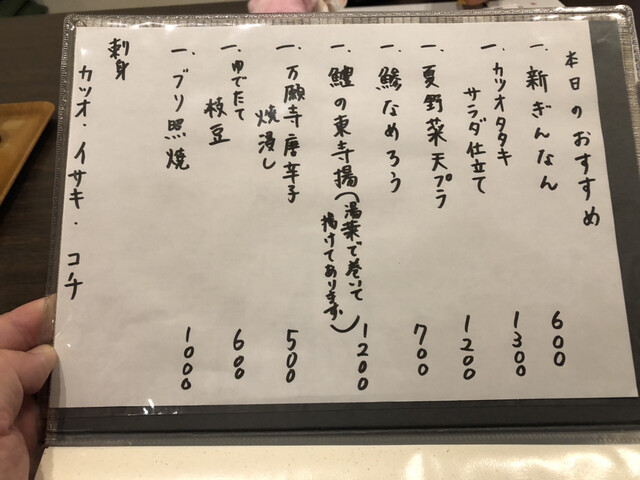 本日のおすすめ
一、新ぎんなん 600
一、カツオタタキ
サラダ仕立て 1300
一、夏野菜天プラ 1200
一、鯵なめろう 700
一、鱧の東寺揚(湯葉で巻いて
揚げてあります。) 1200
一、万願寺唐辛子
焼浸し 500
一、ゆでたて
枝豆 600
一、ブリ照焼 1000
刺身
カツオ・イサキ・コチ